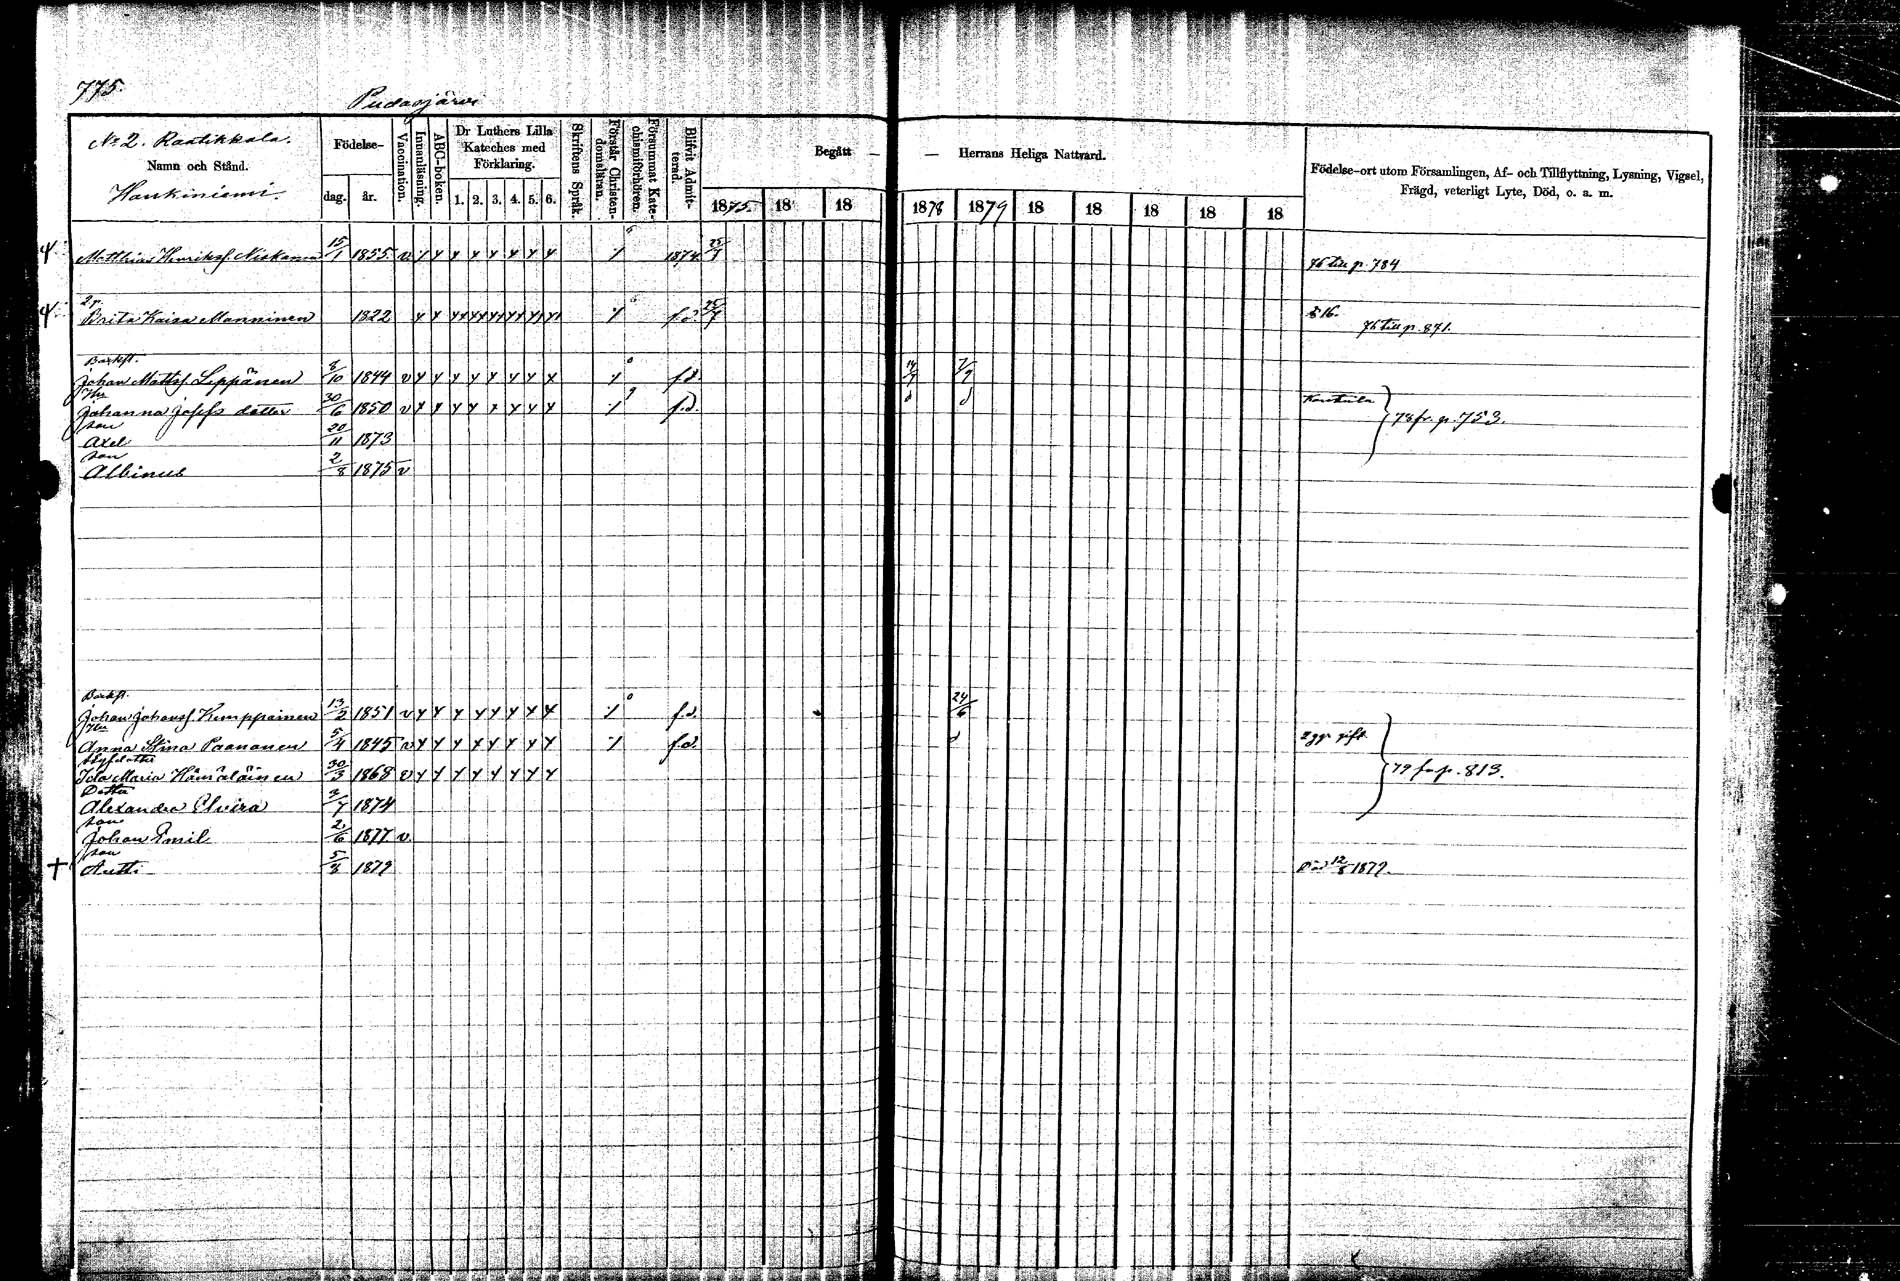 775.
Pudasjärvi
No 2. Raatikkala.
Namn och Stånd.
Hankiniemi.
Födelse-
dag. år.
Vaccination.
Innanläsning.
ABC-boken.
Dr Luthers Lilla
Kateches med
Förklaring.
1. 2. 3. 4. 5. 6.
Skriftens Språk.
Förstår Christen-
domsläran.
Försummat Kate-
chismiförhören.
Blifvit Admit-
terad.
Begått — — Herrans Heliga Nattvard.
1875. 18 18 1878 1879 18 18 18 18 18
Födelse-ort utom Församlingen, Af- och Tillflyttning, Lysning, Vigsel,
Frägd, veterligt Lyte, Död, o. a. m.
Matthias Henrikss. Niskanen 15/1 1855 v 1874. 25/7
76 till p. 784
Brita Kaisa Manninen 1822 f.d. 25/7 § 16.
76 till p. 871.
Backst.
Johan Mattss. Leppänen 8/10 1844 v f.d. 7/9
Hu
Johanna Josefs dotter 30/6 1850 v f.d. 78 fr. p. 753.
son
Axel 20/11 1873
son
Albinus 2/8 1875 v
Backst.
Johan Johanss. Kemppainen 13/2 1851 v f.d. 24/6
Hu
Anna Stina Paananen 5/4 1845 v f.d. 2 ggr gift
Styfdotter
Ida Maria Hämäläinen 30/3 1868 v 79 fr p. 813.
Dotter
Alexandra Elvira 3/7 1874
son
Johan Emil 2/6 1877 v.
son
† Antti 5/8 1879 Död 12/8 1879.